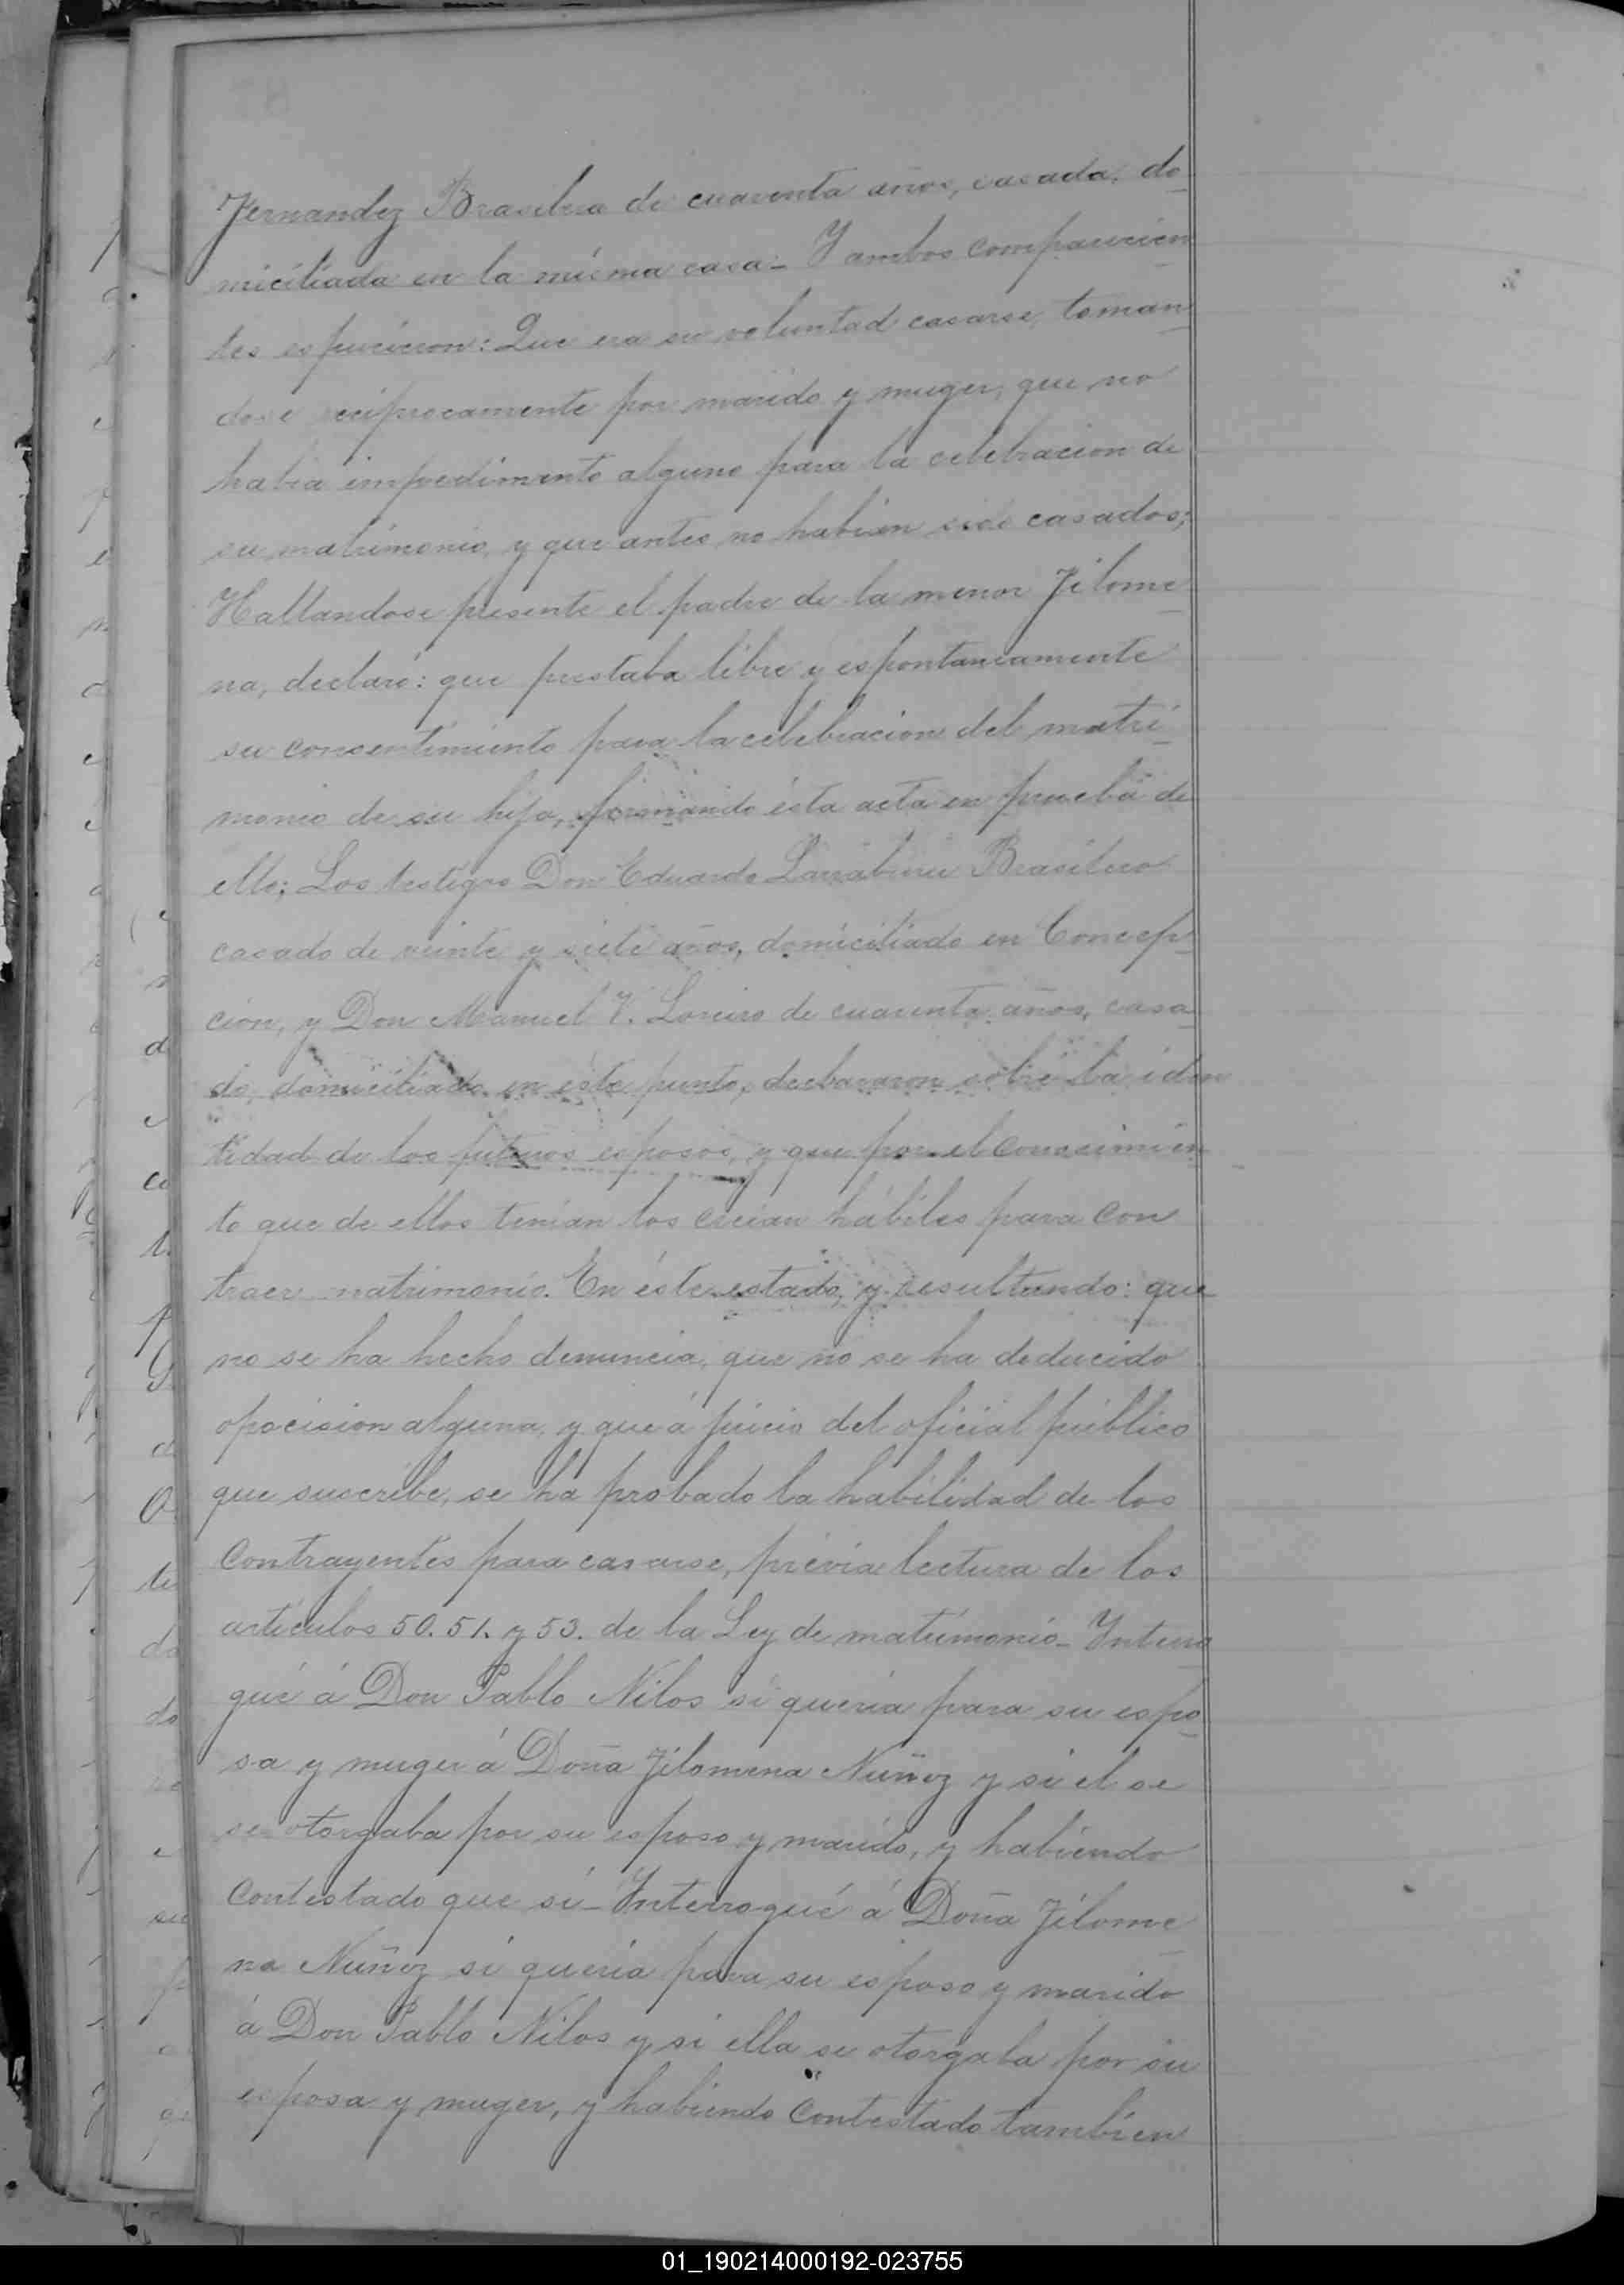 Fernandez Brasilera de cuarenta años, casada, do
miciliada en la misma casa_ Y ambos comparecien
tes espusieron: Que era su voluntad casarse, toman
dose reciprocamente por marido y muger, que no
habia impedimento alguno para la celebracion de
su matrimonio, y que antes no habian sido casados;
Hallandose presente el padre de la menor Filome
na, declaró: que prestaba libre y espontaneamente
su consentimiento para la celebracion del matri
monio de su hija, firmando ésta acta en prueba de
ello; Los testigos Don Eduardo Larraburu Brasilero
casado de veinte y siete años, domiciliado en Concep
cion, y Don Manuel V. Loreiro de cuarenta años, casa
do, domiciliado en este punto, declararon sobre la iden
tidad de los futuros esposos, y que por el conocimien
to que de ellos tenian los creian hábiles para con
traer matrimonio. En éste estado, y resultando: que
no se ha hecho denuncia, que no se ha deducido
oposicion alguna, y que á juicio del oficial público
que suscribe, se ha probado la habilidad de los
Contrayentes para casarse, prévia lectura de los
artículos 50. 51. y 53. de la Ley de matrimonio_ Interro
gué á Don Pablo Nilos si queria para su espo
sa y muger á Doña Filomena Nuñez y si el se
se otorgaba por su esposo y marido, y habiendo
Contestado que si_ Interrogué á Doña Filome
na Nuñez si queria para su esposo y marido
á Don Pablo Nilos y si ella se otorgaba por su
esposa y muger, y habiendo Contestado tambien
01_190214000192-023755